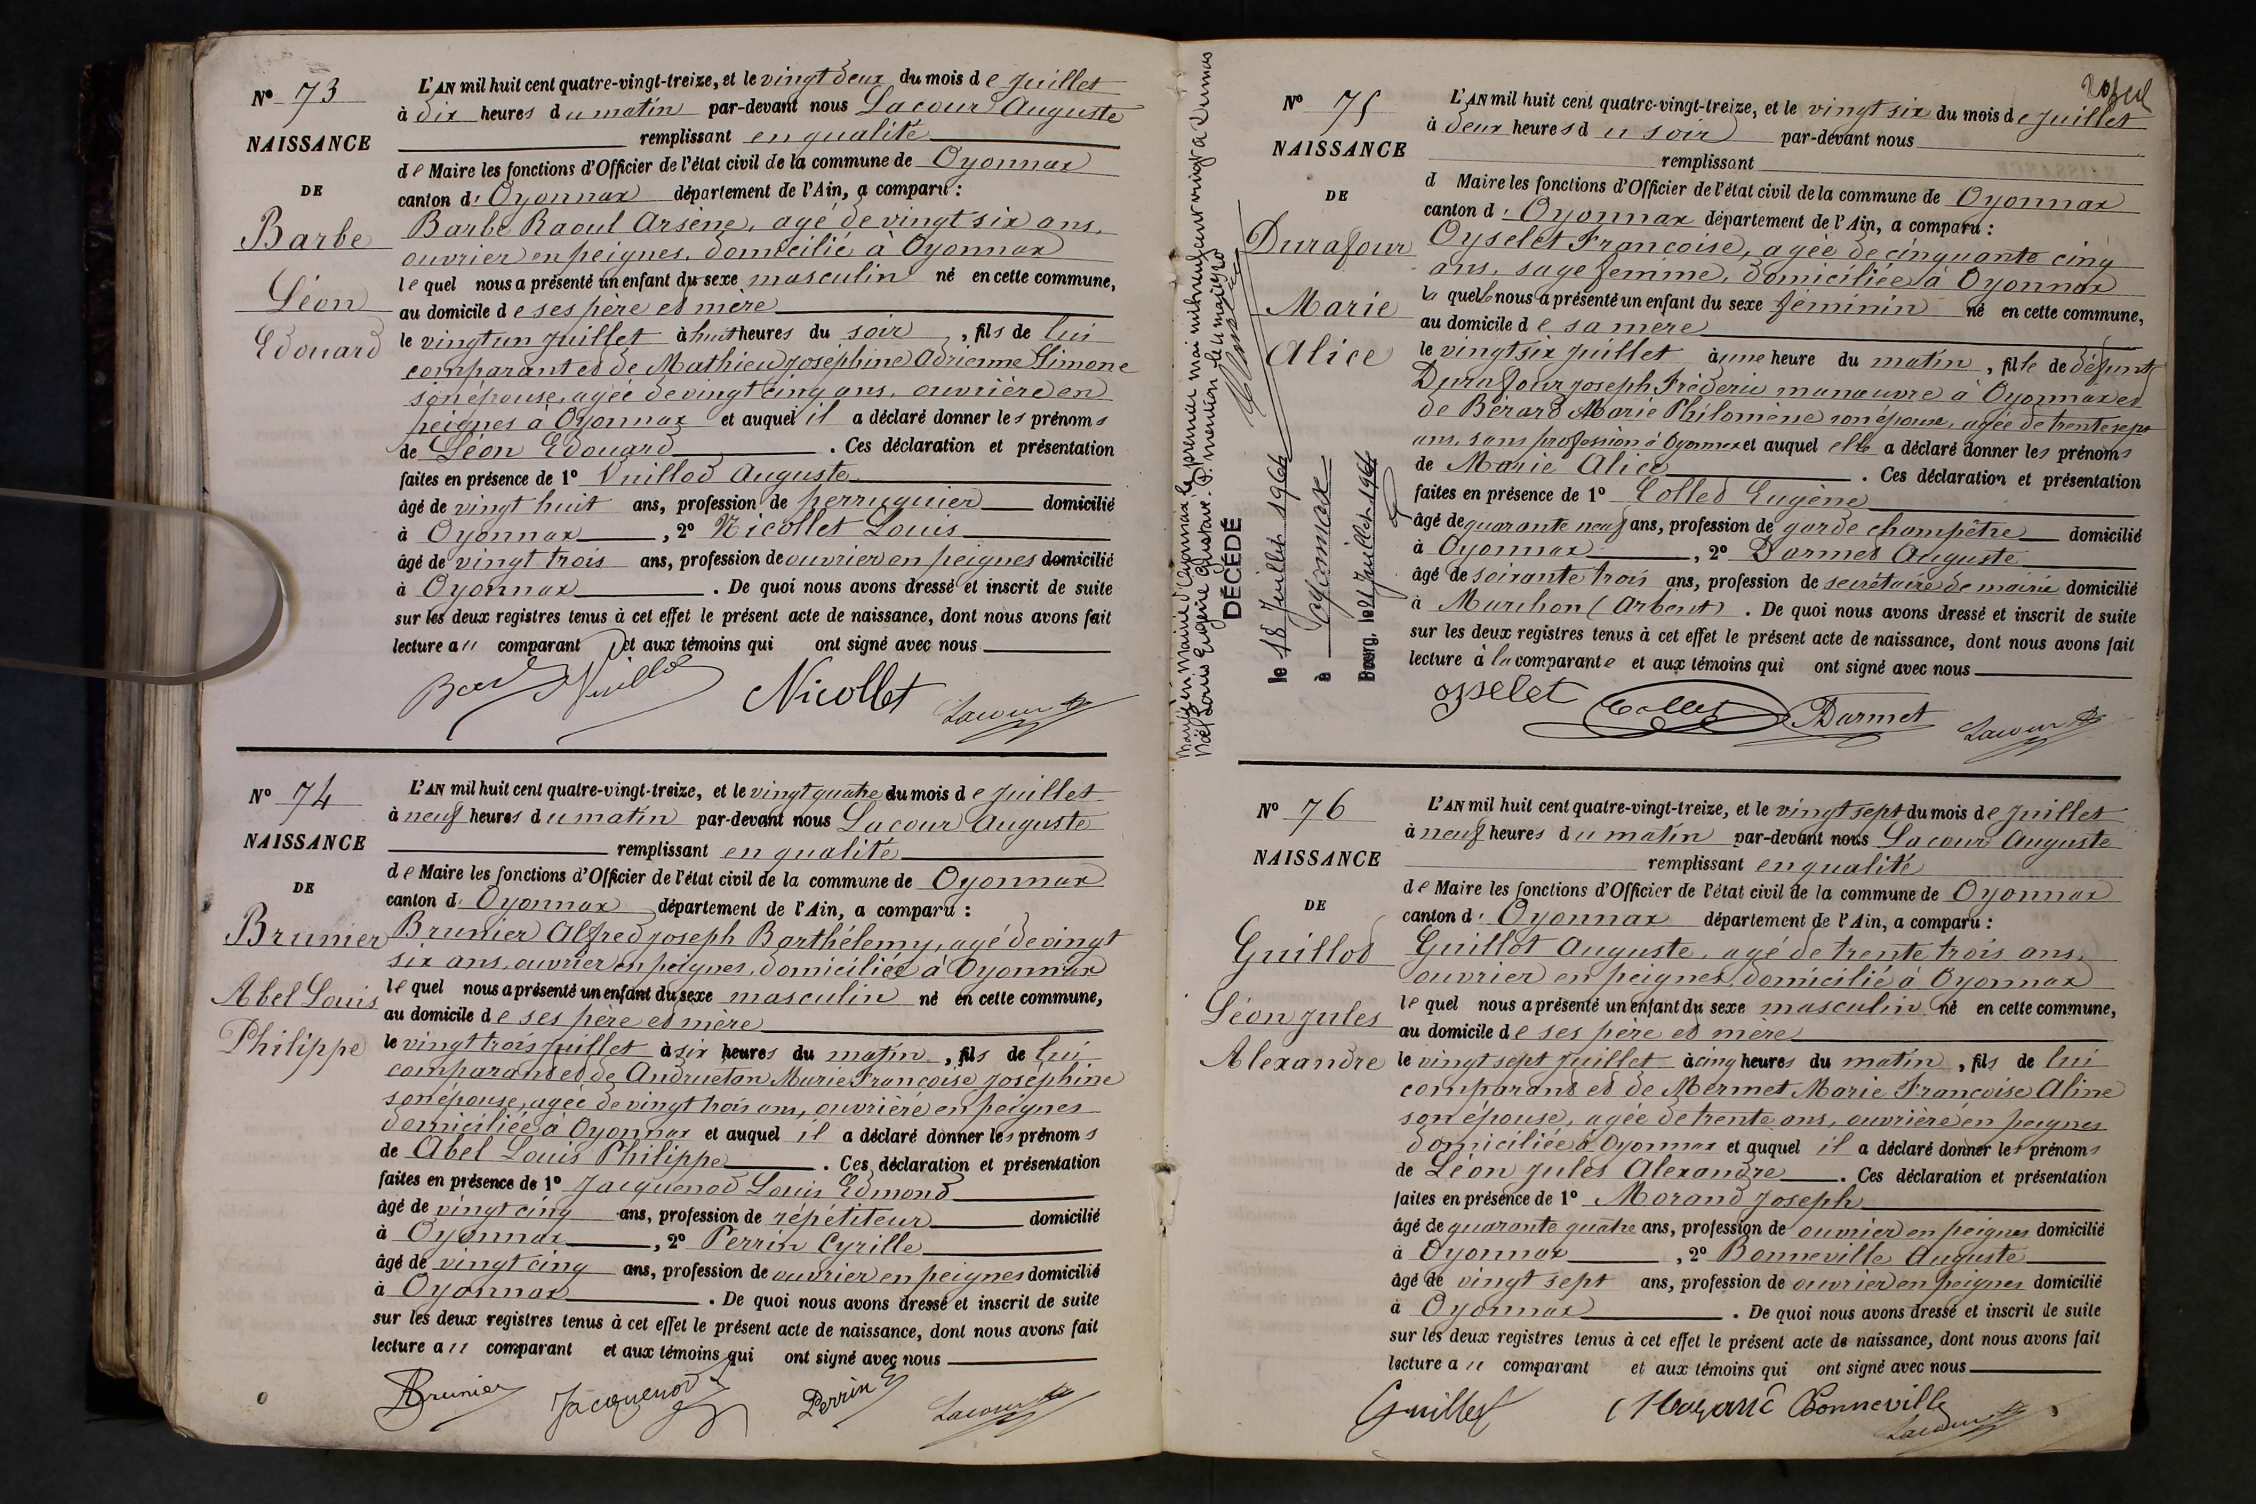 N° 73
NAISSANCE
DE
Barbe
Léon
Edouard
L'AN mil huit cent quatre-vingt-treize, et le vingt deux du mois de juillet
à dix heures du matin par-devant nous Lacour Auguste
remplissant en qualité
de Maire les fonctions d'Officier de l'état civil de la commune de Oyonnax
canton d' Oyonnax département de l'Ain, a comparu :
Barbe Raoul Arsène, agé de vingt six ans,
ouvrier en peignes, domicilié à Oyonnax
lequel nous a présenté un enfant du sexe masculin né en cette commune,
au domicile de ses père et mère
le vingt un juillet à huit heures du soir, fils de lui
comparant et de Mathieu Joséphine Adrienne Simone
son épouse, agée de vingt cinq ans, ouvrière en
peignes à Oyonnax et auquel il a déclaré donner les prénoms
de Léon Edouard. Ces déclaration et présentation
faites en présence de 1° Vuillod Auguste
âgé de vingt huit ans, profession de perruquier domicilié
à Oyonnax, 2° Nicollet Louis
âgé de vingt trois ans, profession de ouvrier en peignes domicilié
à Oyonnax. De quoi nous avons dressé et inscrit de suite
sur les deux registres tenus à cet effet le présent acte de naissance, dont nous avons fait
lecture au comparant et aux témoins qui ont signé avec nous
Vuillod Nicollet Lacour
N° 74
NAISSANCE
DE
Brunier
Abel Louis
Philippe
L'AN mil huit cent quatre-vingt-treize, et le vingt quatre du mois de juillet
à neuf heures du matin par-devant nous Lacour Auguste
remplissant en qualité
de Maire les fonctions d'Officier de l'état civil de la commune de Oyonnax
canton d' Oyonnax département de l'Ain, a comparu :
Brunier Alfred Joseph Barthélemy, agé de vingt
six ans, ouvrier en peignes, domiciliée à Oyonnax
lequel nous a présenté un enfant du sexe masculin né en cette commune,
au domicile de ses père et mère
le vingt trois juillet à six heures du matin, fils de lui
comparant et de Andruetan Marie Françoise Joséphine
son épouse, agée de vingt trois ans, ouvrière en peignes
domiciliée à Oyonnax et auquel il a déclaré donner les prénoms
de Abel Louis Philippe. Ces déclaration et présentation
faites en présence de 1° Jacquenod Louis Edmond
âgé de vingt cinq ans, profession de répétiteur domicilié
à Oyonnax, 2° Perrin Cyrille
âgé de vingt cinq ans, profession de ouvrier en peignes domicilié
à Oyonnax. De quoi nous avons dressé et inscrit de suite
sur les deux registres tenus à cet effet le présent acte de naissance, dont nous avons fait
lecture au comparant et aux témoins qui ont signé avec nous
Brunier Jacquenod Perrin Lacour
N° 75
NAISSANCE
DE
Durafour
Marie
Alice
Mariée en Mairie d'Oyonnax le premier mai mil neuf cent vingt à Dumas
Noël Louis Eugène Gustave. Pr. mention le 11 mai 1920
DÉCÉDÉ
le 18 Juillet 1966
à Oyonnax
Bourg, le 21 Juillet 1966
L'AN mil huit cent quatre-vingt-treize, et le vingt six du mois de juillet
à deux heures du soir par-devant nous
remplissant
d Maire les fonctions d'Officier de l'état civil de la commune de Oyonnax
canton d' Oyonnax département de l'Ain, a comparu :
Oyselet Françoise, agée de cinquante cinq
ans, sage femme, domiciliée à Oyonnax
laquelle nous a présenté un enfant du sexe féminin né en cette commune,
au domicile de sa mère
le vingt six juillet à une heure du matin, fille de défunt
Durafour Joseph Fréderic manœuvre à Oyonnax et
de Bérard Marie Philomène son épouse, agée de trente sept
ans, sans profession à Oyonnax et auquel elle a déclaré donner les prénoms
de Marie Alice. Ces déclaration et présentation
faites en présence de 1° Collet Eugène
âgé de quarante neuf ans, profession de garde champêtre domicilié
à Oyonnax, 2° Darmet Auguste
âgé de soixante trois ans, profession de secrétaire de mairie domicilié
à Marchon (Arbent). De quoi nous avons dressé et inscrit de suite
sur les deux registres tenus à cet effet le présent acte de naissance, dont nous avons fait
lecture à la comparante et aux témoins qui ont signé avec nous
oyselet Collet Darmet Lacour
N° 76
NAISSANCE
DE
Guillod
Léon Jules
Alexandre
L'AN mil huit cent quatre-vingt-treize, et le vingt sept du mois de juillet
à neuf heures du matin par-devant nous Lacour Auguste
remplissant en qualité
de Maire les fonctions d'Officier de l'état civil de la commune de Oyonnax
canton d' Oyonnax département de l'Ain, a comparu :
Guillot Auguste, agé de trente trois ans,
ouvrier en peignes, domicilié à Oyonnax
lequel nous a présenté un enfant du sexe masculin né en cette commune,
au domicile de ses père et mère
le vingt sept juillet à cinq heures du matin, fils de lui
comparant et de Mermet Marie Françoise Aline
son épouse, agée de trente ans, ouvrière en peignes
domiciliée à Oyonnax et auquel il a déclaré donner les prénoms
de Léon Jules Alexandre. Ces déclaration et présentation
faites en présence de 1° Morand Joseph
âgé de quarante quatre ans, profession de ouvrier en peignes domicilié
à Oyonnax, 2° Bonneville Auguste
âgé de vingt sept ans, profession de ouvrier en peignes domicilié
à Oyonnax. De quoi nous avons dressé et inscrit de suite
sur les deux registres tenus à cet effet le présent acte de naissance, dont nous avons fait
lecture au comparant et aux témoins qui ont signé avec nous
Guillot Bonneville Lacour